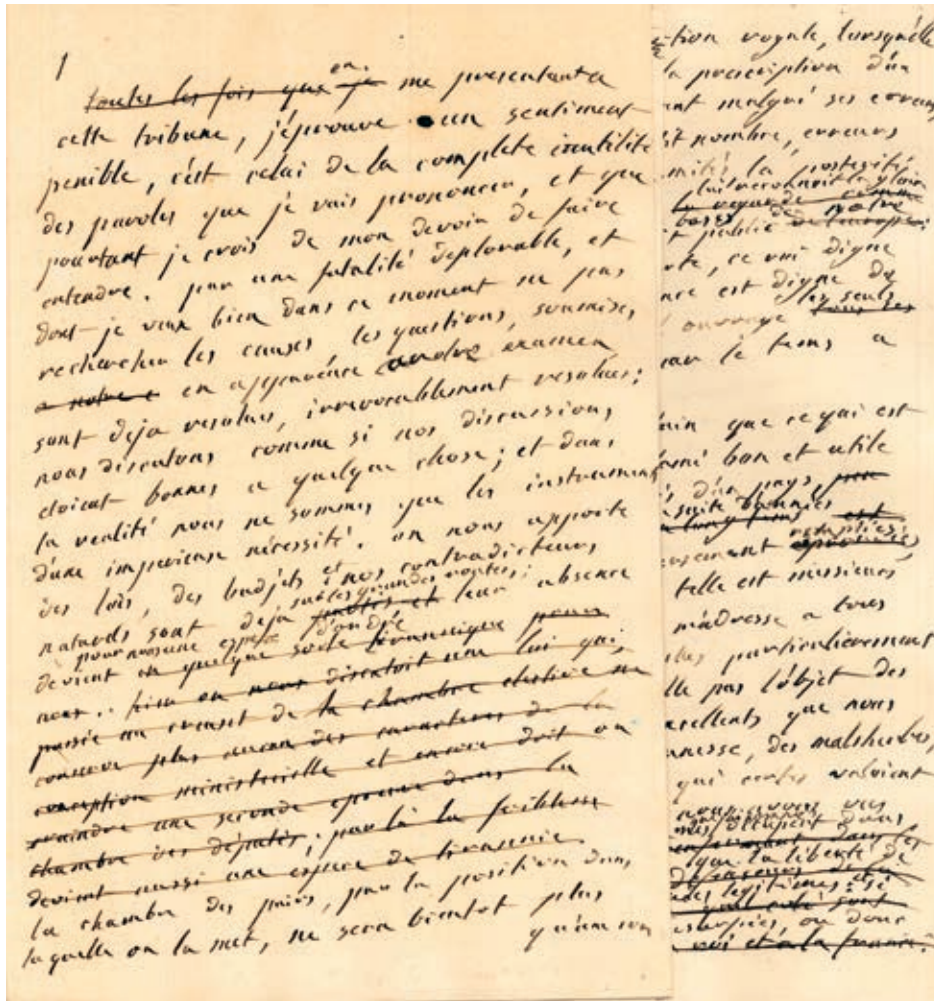 1
toutes les fois que je en me presentant a
cette tribune, j'éprouve un sentiment
penible, c'est celui de la complete inutilité
des paroles que je vais prononcer, et que
pourtant je crois de mon devoir de faire
entendre. par une fatalité deplorable, et
dont je veux bien dans ce moment ne pas
rechercher les causes, les questions, soumises,
a notre e en apparence a votre examen
sont deja resolues, irrevocablement resolues;
nous discutons comme si nos discussions,
etoient bonnes a quelque chose; et dans
la realité nous ne sommes que les instruments
d'une imperieuse nécessité. on nous apporte
des lois, des budjets et nos contradicteurs
naturels sont deja sur les grandes routes; leur absence
devient pour nous une espece d'ordre en quelque sorte tirannique pour
nous. on nous discutoit une loi qui,
passée au creuset de la chambre elective ne
conserve plus aucun des caracteres de la
conception ministerielle et encore doit on
craindre une seconde epreuve dans la
chambre des députés; par là la foiblesse
devient aussi une espece de tirannie.
la chambre des pairs, par la position dans
laquelle on la met, ne sera bientot plus
qu'un
tion royale, lorsqu'elle
la proscription d'un
ant malgré ses erreurs
nombre, erreurs
la posterité
lui reconnoit la gloire
la regarde comme
bases de notre
public
ce roi digne
est digne du
ouvrage les seuls
le tems a
que ce qui est
bon et utile
d'un pays,
suite bannies est
remplies;
telle est messieurs
m'adresse a tous
particulierement
pas l'objet des
excellents que nous
des malsherbes,
qui certes valoient
nous avons vus
dans
que la liberté de
legitimes; si
sont
ou donc
roi et a la france.